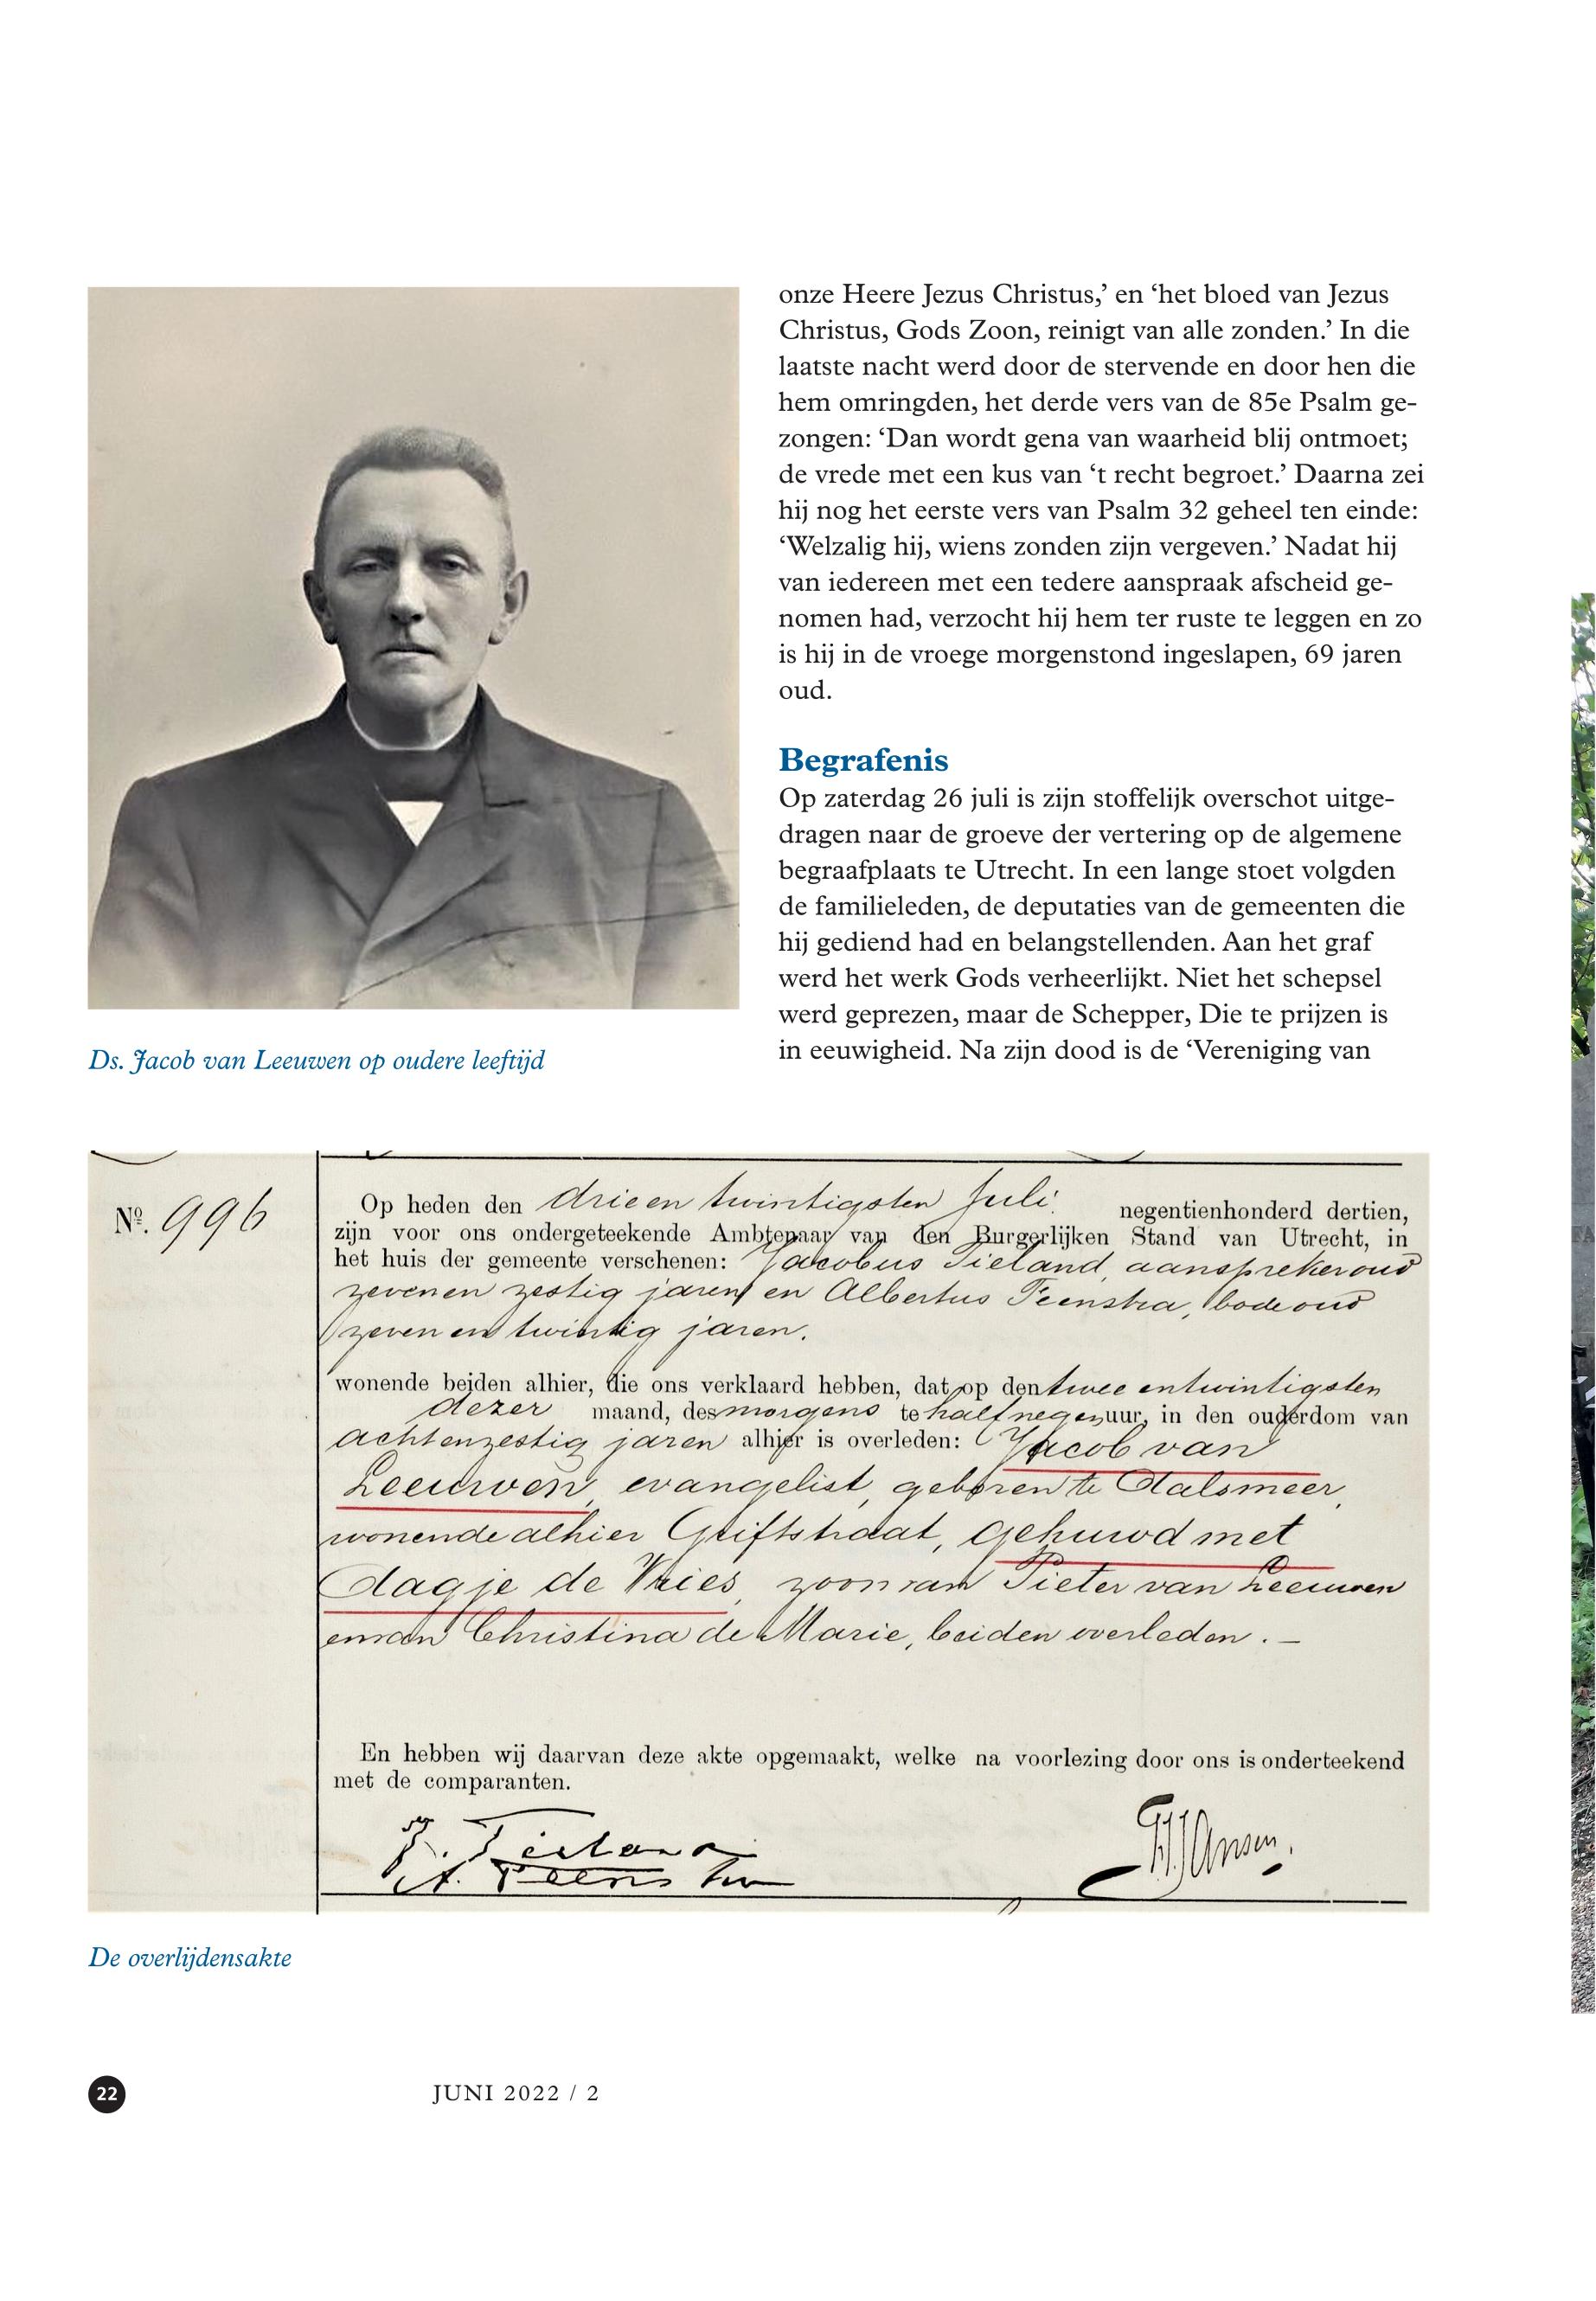 onze Heere Jezus Christus,’ en ‘het bloed van Jezus
Christus, Gods Zoon, reinigt van alle zonden.’ In die
laatste nacht werd door de stervende en door hen die
hem omringden, het derde vers van de 85e Psalm ge-
zongen: ‘Dan wordt gena van waarheid blij ontmoet;
de vrede met een kus van ‘t recht begroet.’ Daarna zei
hij nog het eerste vers van Psalm 32 geheel ten einde:
‘Welzalig hij, wiens zonden zijn vergeven.’ Nadat hij
van iedereen met een tedere aanspraak afscheid ge-
nomen had, verzocht hij hem ter ruste te leggen en zo
is hij in de vroege morgenstond ingeslapen, 69 jaren
oud.
Begrafenis
Op zaterdag 26 juli is zijn stoffelijk overschot uitge-
dragen naar de groeve der vertering op de algemene
begraafplaats te Utrecht. In een lange stoet volgden
de familieleden, de deputaties van de gemeenten die
hij gediend had en belangstellenden. Aan het graf
werd het werk Gods verheerlijkt. Niet het schepsel
werd geprezen, maar de Schepper, Die te prijzen is
in eeuwigheid. Na zijn dood is de ‘Vereniging van
Ds. Jacob van Leeuwen op oudere leeftijd
Nº. 996
Op heden den drie en twintigsten Juli negentienhonderd dertien,
zijn voor ons ondergeteekende Ambtenaar van den Burgerlijken Stand van Utrecht, in
het huis der gemeente verschenen: Jacobus Tieland, aanspreker oud
zeven en zestig jaren en Albertus Teenstra, bode oud
zeven en twintig jaren.
wonende beiden alhier, die ons verklaard hebben, dat op den twee en twintigsten
dezer maand, des morgens te half negen uur, in den ouderdom van
achtenzestig jaren alhier is overleden: Jacob van
Leeuwen, evangelist, geboren te Aalsmeer,
wonende alhier Griftstraat, gehuwd met
Aagje de Vries, zoon van Pieter van Leeuwen
en van Christina de Marie, beiden overleden. —
En hebben wij daarvan deze akte opgemaakt, welke na voorlezing door ons is onderteekend
met de comparanten.
J. Tieland
A. Teenstra
Jansen.
De overlijdensakte
22
JUNI 2022 / 2